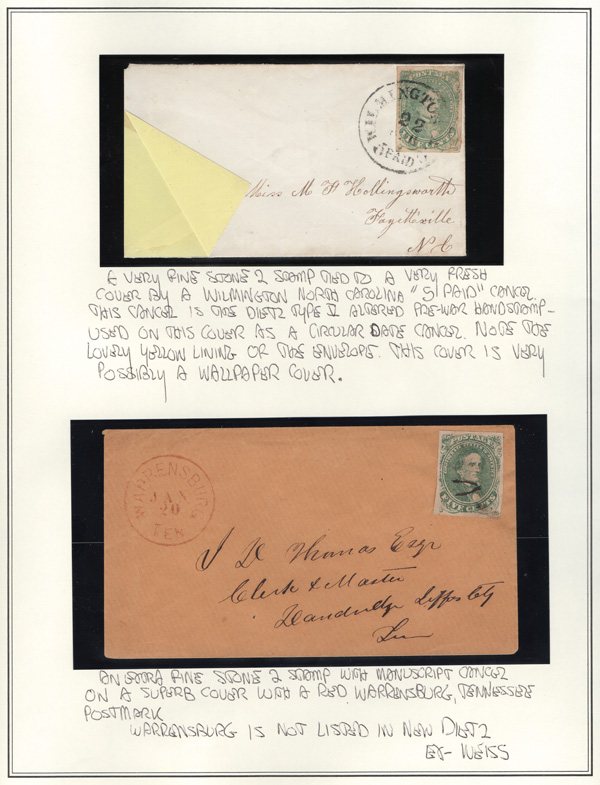 WILMINGTON
22
5 PAID
POSTAGE
FIVE CENTS
Miss M F Hollingsworth
Fayetteville
N C
A VERY FINE STONE 2 STAMP TIED TO A VERY FRESH
COVER BY A WILMINGTON NORTH CAROLINA "5 PAID" CANCEL.
THIS CANCEL IS THE DIETZ TYPE V ALTERED PRE-WAR HANDSTAMP-
USED ON THIS COVER AS A CIRCULAR DATE CANCEL. NOTE THE
LOVELY YELLOW LINING OF THE ENVELOPE. THIS COVER IS VERY
POSSIBLY A WALLPAPER COVER.
WARRENSBURG
JAN
20
TEN
POSTAGE
FIVE CENTS
J D Thomas Esqr
Clerk & Master
Dandridge Jefferson Cty
Ten
AN EXTRA FINE STONE 2 STAMP WITH MANUSCRIPT CANCEL
ON A SUPERB COVER WITH A RED WARRENSBURG, TENNESSEE
POSTMARK
WARRENSBURG IS NOT LISTED IN NEW DIETZ
EX-WEISS